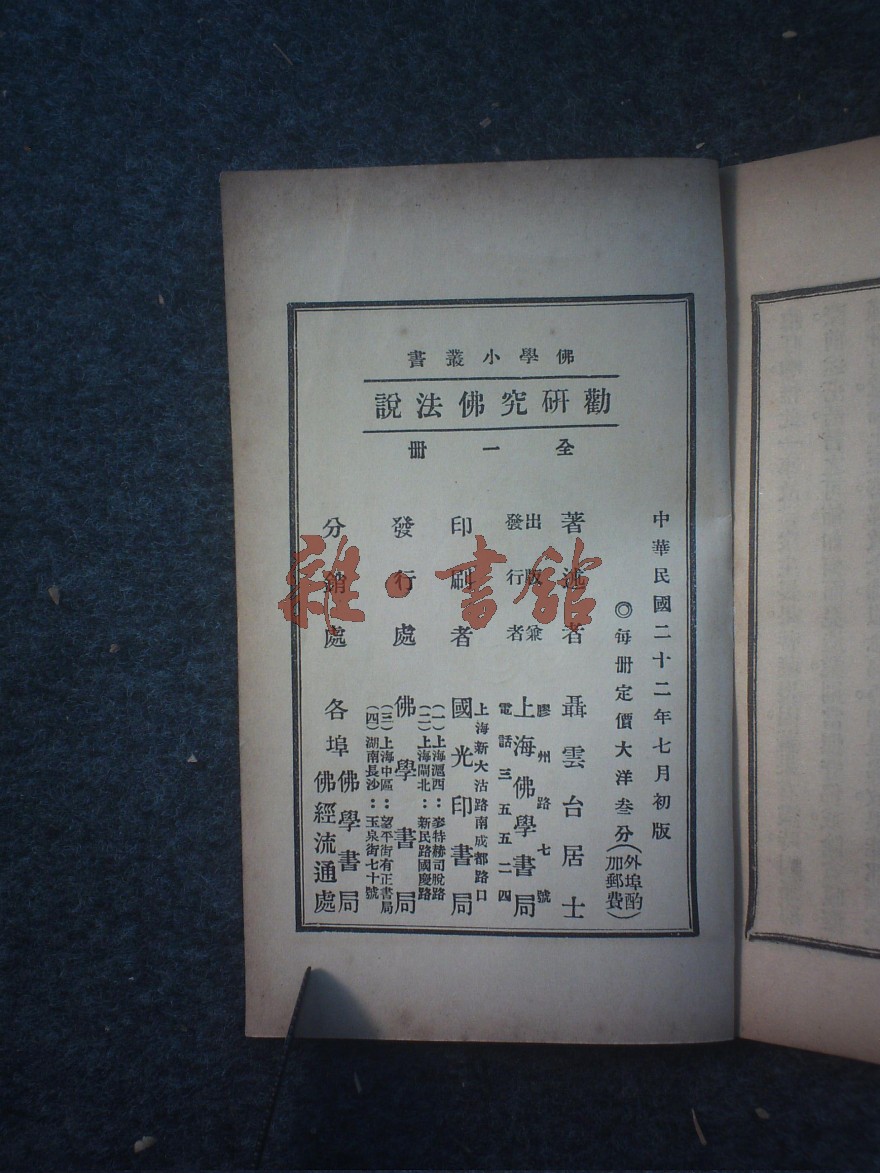 佛學小叢書
勸研究佛法說
全一冊
中華民國二十二年七月初版
◎每冊定價大洋叁分(外埠酌加郵費)
著述者 聶雲台居士
出版兼發行者 上海佛學書局
膠州路七號
電話三五五二四
印刷者 國光印書局
上海新大沽路南成都路口
發行處 佛學書局
(一)上海滬西：麥特赫司脫路
(二)上海閘北：新民路國慶路
(三)上海中區：望平街有正書局
(四)湖南長沙：玉泉街七十號
分銷處 各埠佛學書局
佛經流通處
雜·書館